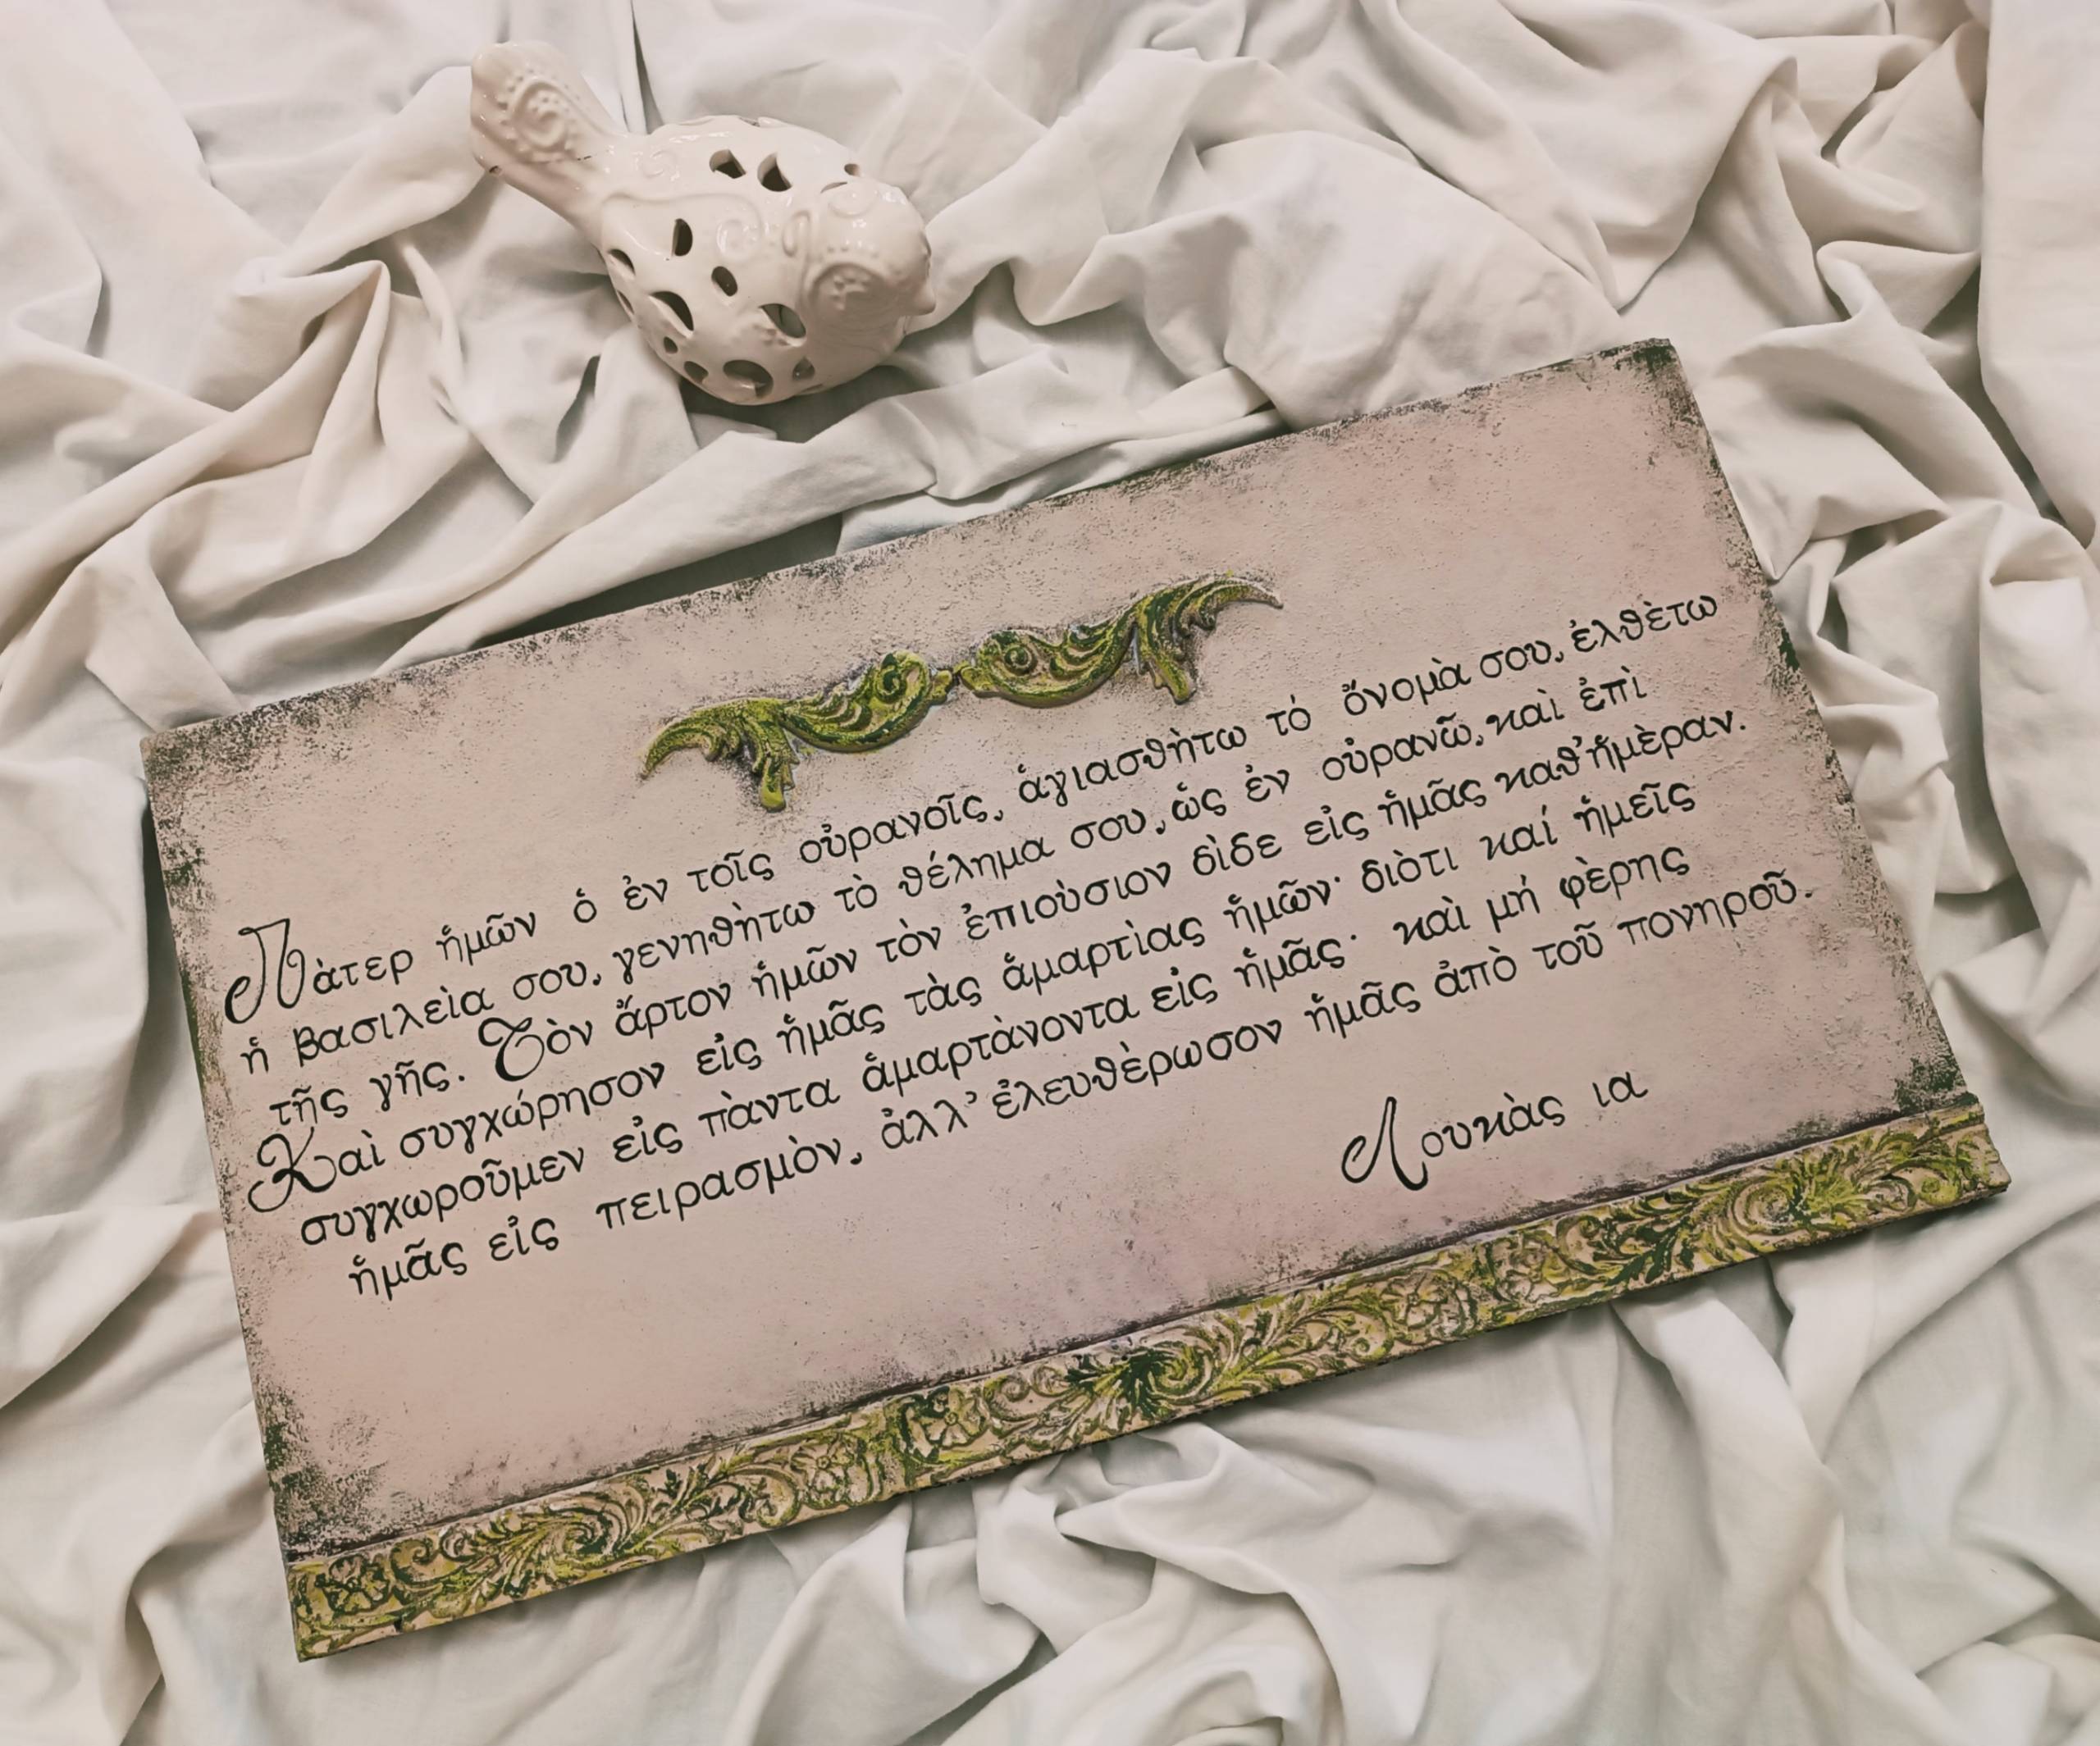 Πὰτερ ἡμῶν ὁ ἐν τοῖς οὐρανοῖς, ἁγιασθὴτω τό ὄνομὰ σου, ἐλθὲτω
ἡ βασιλεὶα σου, γενηθὴτω τὸ θέλημα σου, ὡς ἐν οὐρανῶ, καὶ ἐπὶ
τῆς γῆς. Τὸν ἄρτον ἡμῶν τὸν ἐπιοὺσιον δὶδε εἰς ἡμᾶς καθ' ἡμὲραν.
Καὶ συγχώρησον εἰς ἡμᾶς τὰς ἁμαρτὶας ἡμῶν· διὸτι καί ἡμεῖς
συγχωροῦμεν εἰς πὰντα ἁμαρτὰνοντα εἰς ἡμᾶς· καὶ μή φὲρης
ἡμᾶς εἰς πειρασμὸν, ἀλλ' ἐλευθὲρωσον ἡμᾶς ἀπὸ τοῦ πονηροῦ.
Λουκὰς ια